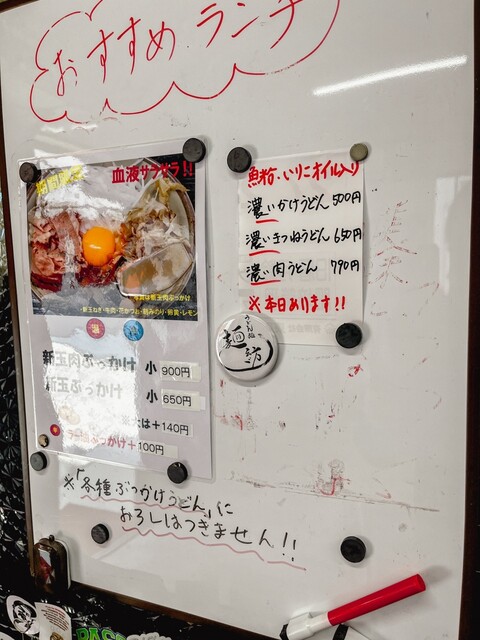 おすすめ ランチ
血液サラサラ!!
・新玉ねぎ・牛肉・花かつお・刻みのり・卵黄・レモン
新玉肉ぶっかけ 小 900円
新玉ぶっかけ 小 650円
大は+140円
ぶっかけ+100円
魚粉・いりこオイル入り
濃いかけうどん 500円
濃いきつねうどん 650円
濃い肉うどん 790円
※本日あります!!
※「各種ぶっかけうどん」に
おろしはつきません!!